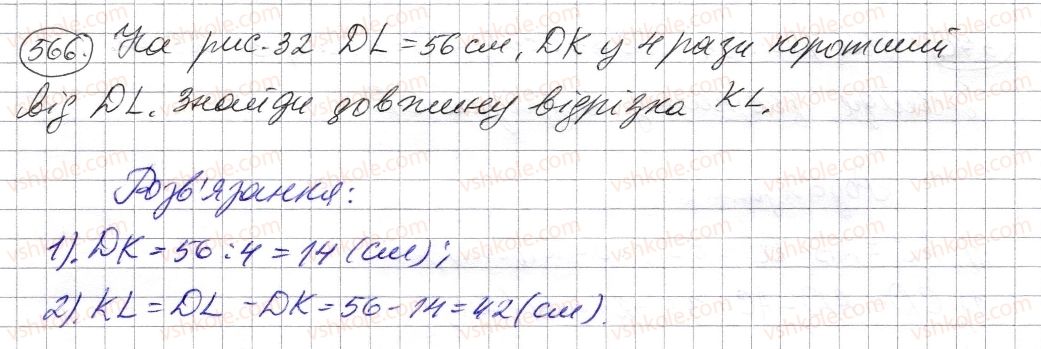 566.) На рис. 32 DL = 56 см, DK у 4 рази коротший
від DL. Знайди довжину відрізка KL.
Розв'язання:
1). DK = 56 : 4 = 14 (см);
2). KL = DL - DK = 56 - 14 = 42 (см).